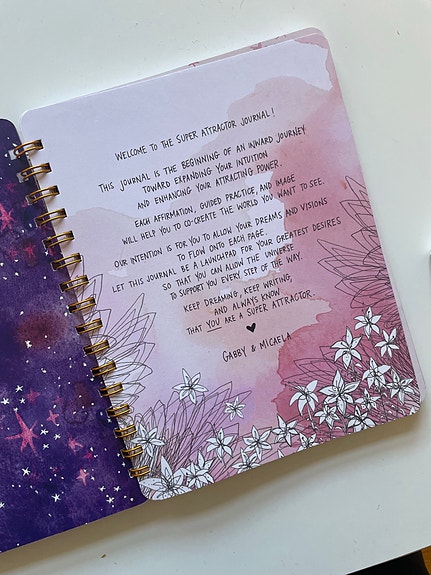 WELCOME TO THE SUPER ATTRACTOR JOURNAL!
THIS JOURNAL IS THE BEGINNING OF AN INWARD JOURNEY
TOWARD EXPANDING YOUR INTUITION
AND ENHANCING YOUR ATTRACTING POWER.
EACH AFFIRMATION, GUIDED PRACTICE, AND IMAGE
WILL HELP YOU TO CO-CREATE THE WORLD YOU WANT TO SEE.
OUR INTENTION IS FOR YOU TO ALLOW YOUR DREAMS AND VISIONS
TO FLOW ONTO EACH PAGE.
LET THIS JOURNAL BE A LAUNCHPAD FOR YOUR GREATEST DESIRES
SO THAT YOU CAN ALLOW THE UNIVERSE
TO SUPPORT YOU EVERY STEP OF THE WAY.
KEEP DREAMING, KEEP WRITING,
AND ALWAYS KNOW
THAT YOU ARE A SUPER ATTRACTOR.
GABBY & MICAELA